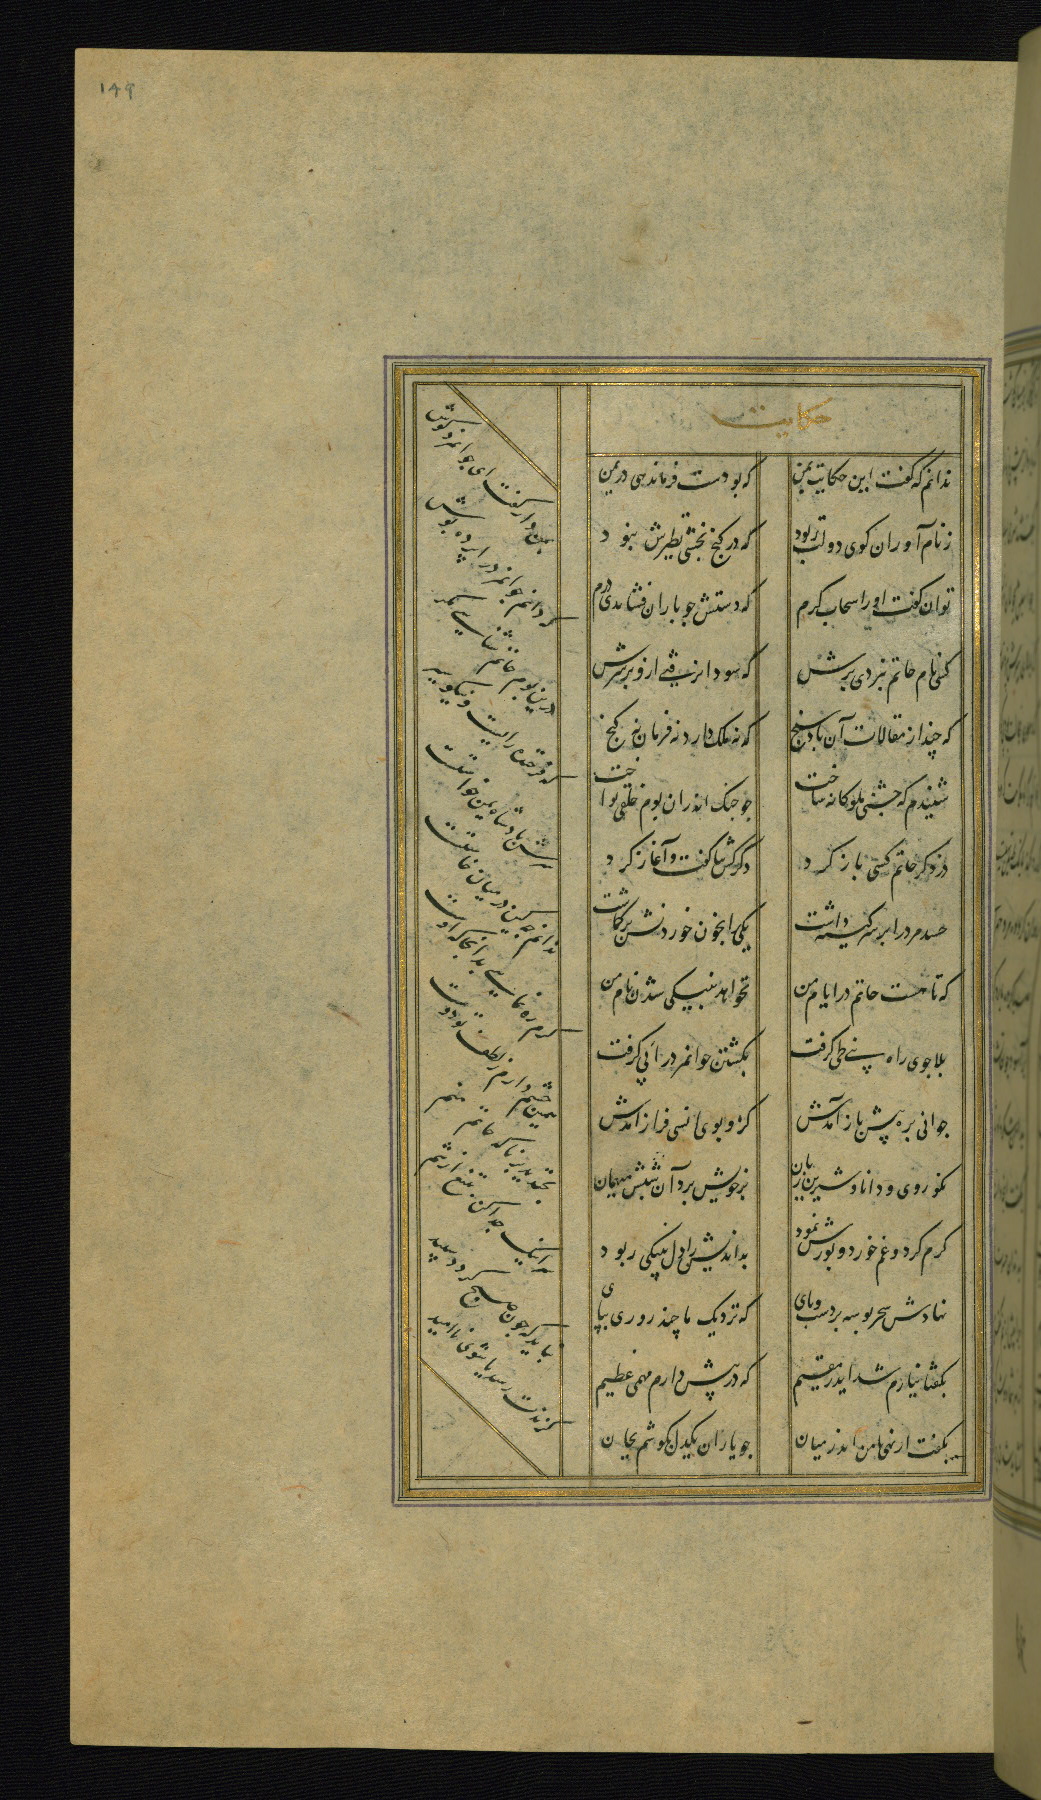 ۱۴۹
حکایت
ندانم که گفت این حکایت بمن که بودست فرماندهی در یمن
ز نام آوران کوی دولت ربود که در کنج بخشی نظیرش نبود
توان گفت او را سحاب کرم که دستش چو باران فشاندی درم
کسی نام حاتم نبردی برش که سودا نرفتی ازو بر سرش
که چند از مقالات آن بادسنج که نه ملک دارد نه فرمان نه کنج
شنیدم که جشنی ملوکانه ساخت چو جنک اندران بوم خلقی نواخت
در ذکر حاتم کسی باز کرد دکر کس ثنا گفت و آغاز کرد
حسد مرد را بر سر کینه داشت یکی را بخون خوردنش بر کماشت
که تا هست حاتم در ایام من نخواهد بنیکی شدن نام من
بلا جوی راه بنی طی کرفت بکشتن جوانمرد را پی کرفت
جوانی بره پیش باز آمدش کزو بوی انسی فراز آمدش
نکو روی و دانا و شیرین زبان بر خویش برد آن شبش میهمان
کرم کرد و غم خورد و پوزش نمود بداندیش را دل بنیکی ربود
نهادش سحر بوسه بر دست و پای که نزدیک ما چند روزی بپای
بکفتا نیارم شد ایدر مقیم که در پیش دارم مهمی عظیم
بکفت ار نهی با من اندر میان چو یاران یکدل بکوشم بجان
بمن دار کفت ای جوانمرد کوش
که دانم جوانمرد را پرده پوش
درین بوم حاتم شناسی مکر
که فرخنده رایست و نیکو سیر
سرش پادشاه یمن خواستست
ندانم چه کین در میان خاستست
کرم ره نمایی بدانجا که اوست
همین چشم دارم ز لطف تو دوست
بخندید برنا که حاتم منم
سر اینک جدا کن بتیغ از تنم
نباید که چون صبح کردد سپید
کزندت رسد یا شوی ناامید